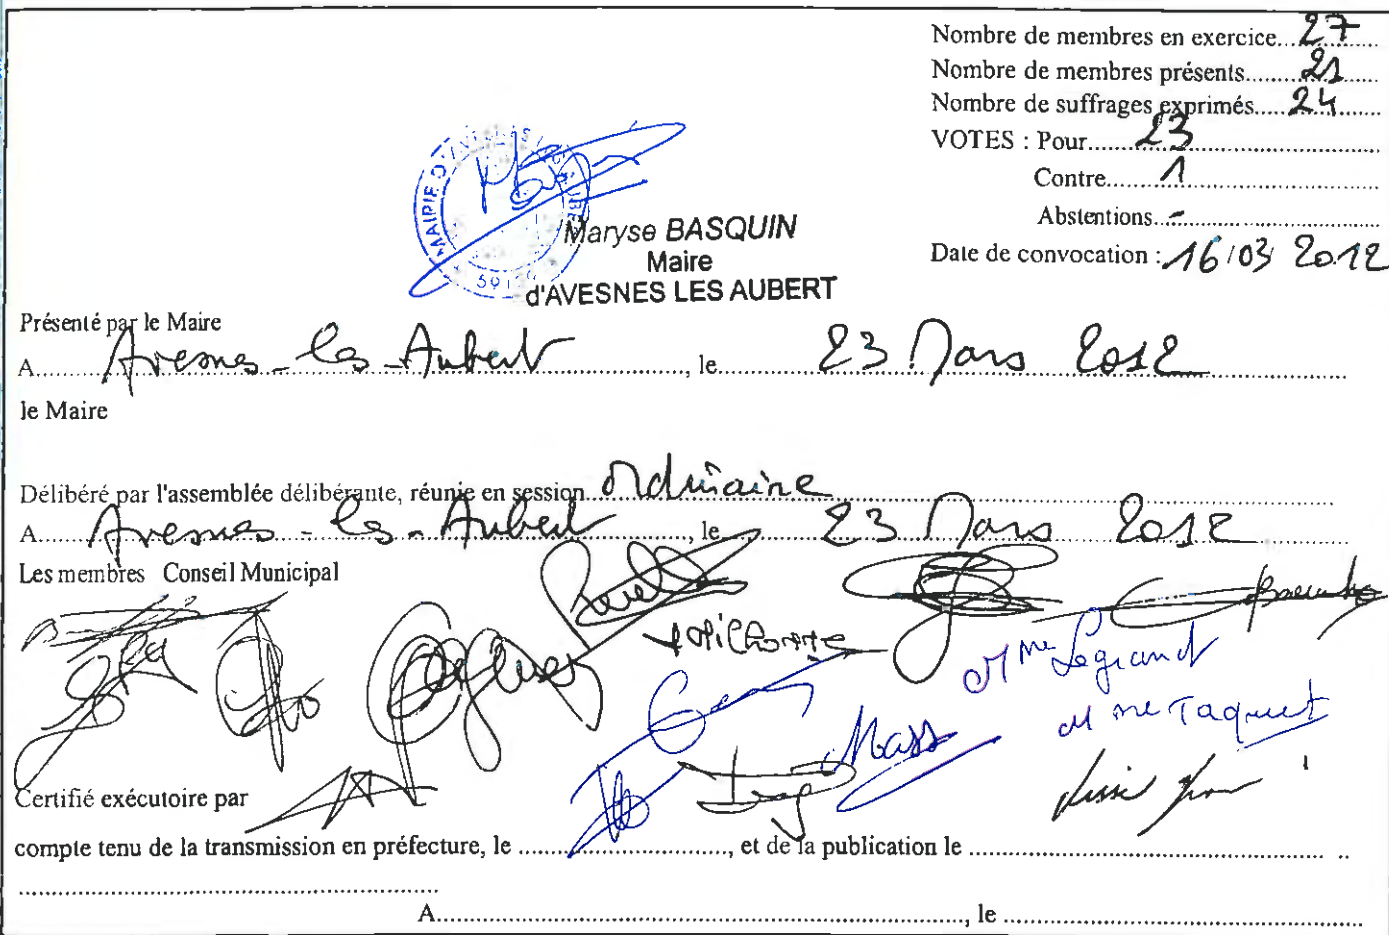 Nombre de membres en exercice...27......
Nombre de membres présents.........21......
Nombre de suffrages exprimés.....24.......
VOTES : Pour......23..............................
Contre.......1................................
Abstentions..-................................
Date de convocation : 16/03/2012
MAIRIE D'AVESNES LES AUBERT
59129
Maryse BASQUIN
Maire
d'AVESNES LES AUBERT
Présenté par le Maire
A........Avesnes-les-Aubert........................, le................23 Mars 2012........................
le Maire
Délibéré par l'assemblée délibérante, réunie en session ordinaire........................
A........Avesnes-les-Aubert........................, le................23 Mars 2012........................
Les membres Conseil Municipal
Mme Legrand
Mme Taquet
Mass
Certifié exécutoire par
compte tenu de la transmission en préfecture, le ................................, et de la publication le ...................................................... ..
................................................................
A................................................................................, le ......................................................